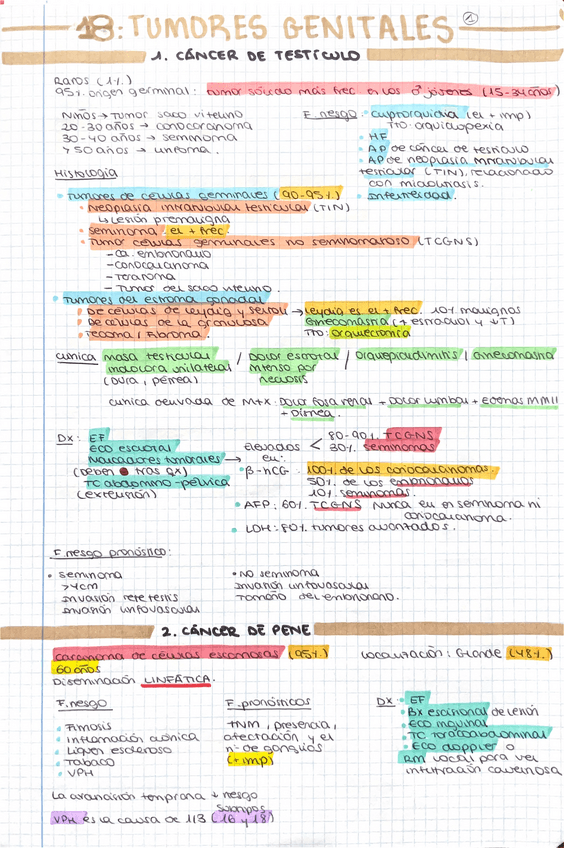 18: TUMORES GENITALES ①
1. CÁNCER DE TESTÍCULO
Raros (1%)
95% origen germinal: tumor sólido más frec en los ♂ jóvenes (15-34 años)
Niños → tumor saco vitelino
20-30 años → coriocarcinoma
30-40 años → seminoma
>50 años → linfoma.
F. riesgo: · Criptorquidia (el + imp)
Tto: orquidopexia
· HF
· AP de cáncer de testículo
· AP de neoplasia intratubular
testicular (TIN), relacionado
con microlitiasis.
· Infertilidad.
Histología
· Tumores de células germinales (90-95%)
· Neoplasia intratubular testicular (TIN)
↳ Lesión premaligna
· Seminoma: el + frec.
· Tumor células germinales no seminomatoso (TCGNS)
- Ca. embrionario
- Coriocarcinoma
- Teratoma
- Tumor del saco vitelino.
· Tumores del estroma gonadal
· De células de leydig y sertoli → leydig es el + frec. 10% malignos
· De células de la granulosa Ginecomastia (+ estradiol y ↓T)
· Tecoma / Fibroma. Tto: orquiectomía
Clínica: Masa testicular / Dolor escrotal / Orquiepididimitis / Ginecomastia
indolora unilateral intenso por
(dura, pétrea) necrosis
Clínica derivada de M+x: Dolor fosa renal + Dolor lumbar + edemas MMII
+ Disnea.
Dx: · EF
· ECO escrotal
· Marcadores tumorales →
(Deben ● tras qx)
· TC abdomino-pélvica
(extensión)
elevados < 80-90% TCGNS
30% seminomas
en:
· β-hCG: 100% de los coriocarcinomas.
50% de los embrionarios
10% seminomas.
· AFP: 60% TCGNS Nunca eu en seminoma ni
coriocarcinoma.
· LDH: 80% tumores avanzados.
F. riesgo pronóstico:
· Seminoma
>4cm
Invasión rete testis
Invasión linfovascular
· No seminoma
Invasión linfovascular
Tamaño del embrionario.
2. CÁNCER DE PENE
Carcinoma de células escamosas (95%) Localización: Glande (48%)
60 años
Diseminación LINFÁTICA.
F. riesgo
· Fimosis
· Inflamación crónica
· Liquen escleroso
· Tabaco
· VPH
F. pronósticos
TNM, presencia,
afectación y el
nº de ganglios
(+ imp)
Dx: · EF
· Bx escisional de lesión
· Eco inguinal
· TC toracoabdominal
· Eco doppler o
RM local para ver
infiltración cavernosa
La circuncisión temprana ↓ riesgo
VPH es la causa de 1/3 (16 y 18)
Subtipos